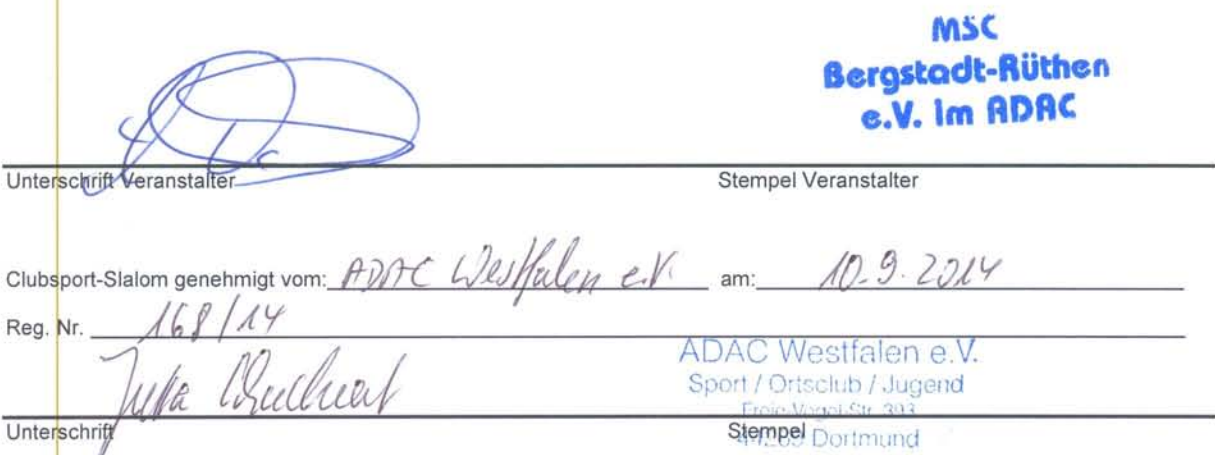 MSC
Bergstadt-Rüthen
e.V. im ADAC
Unterschrift Veranstalter Stempel Veranstalter
Clubsport-Slalom genehmigt vom: ADAC Westfalen e.V. am: 10.9.2014
Reg. Nr. 168/14
ADAC Westfalen e.V.
Sport / Ortsclub / Jugend
Freie-Vogel-Str. 393
Jutta
Unterschrift Stempel Dortmund